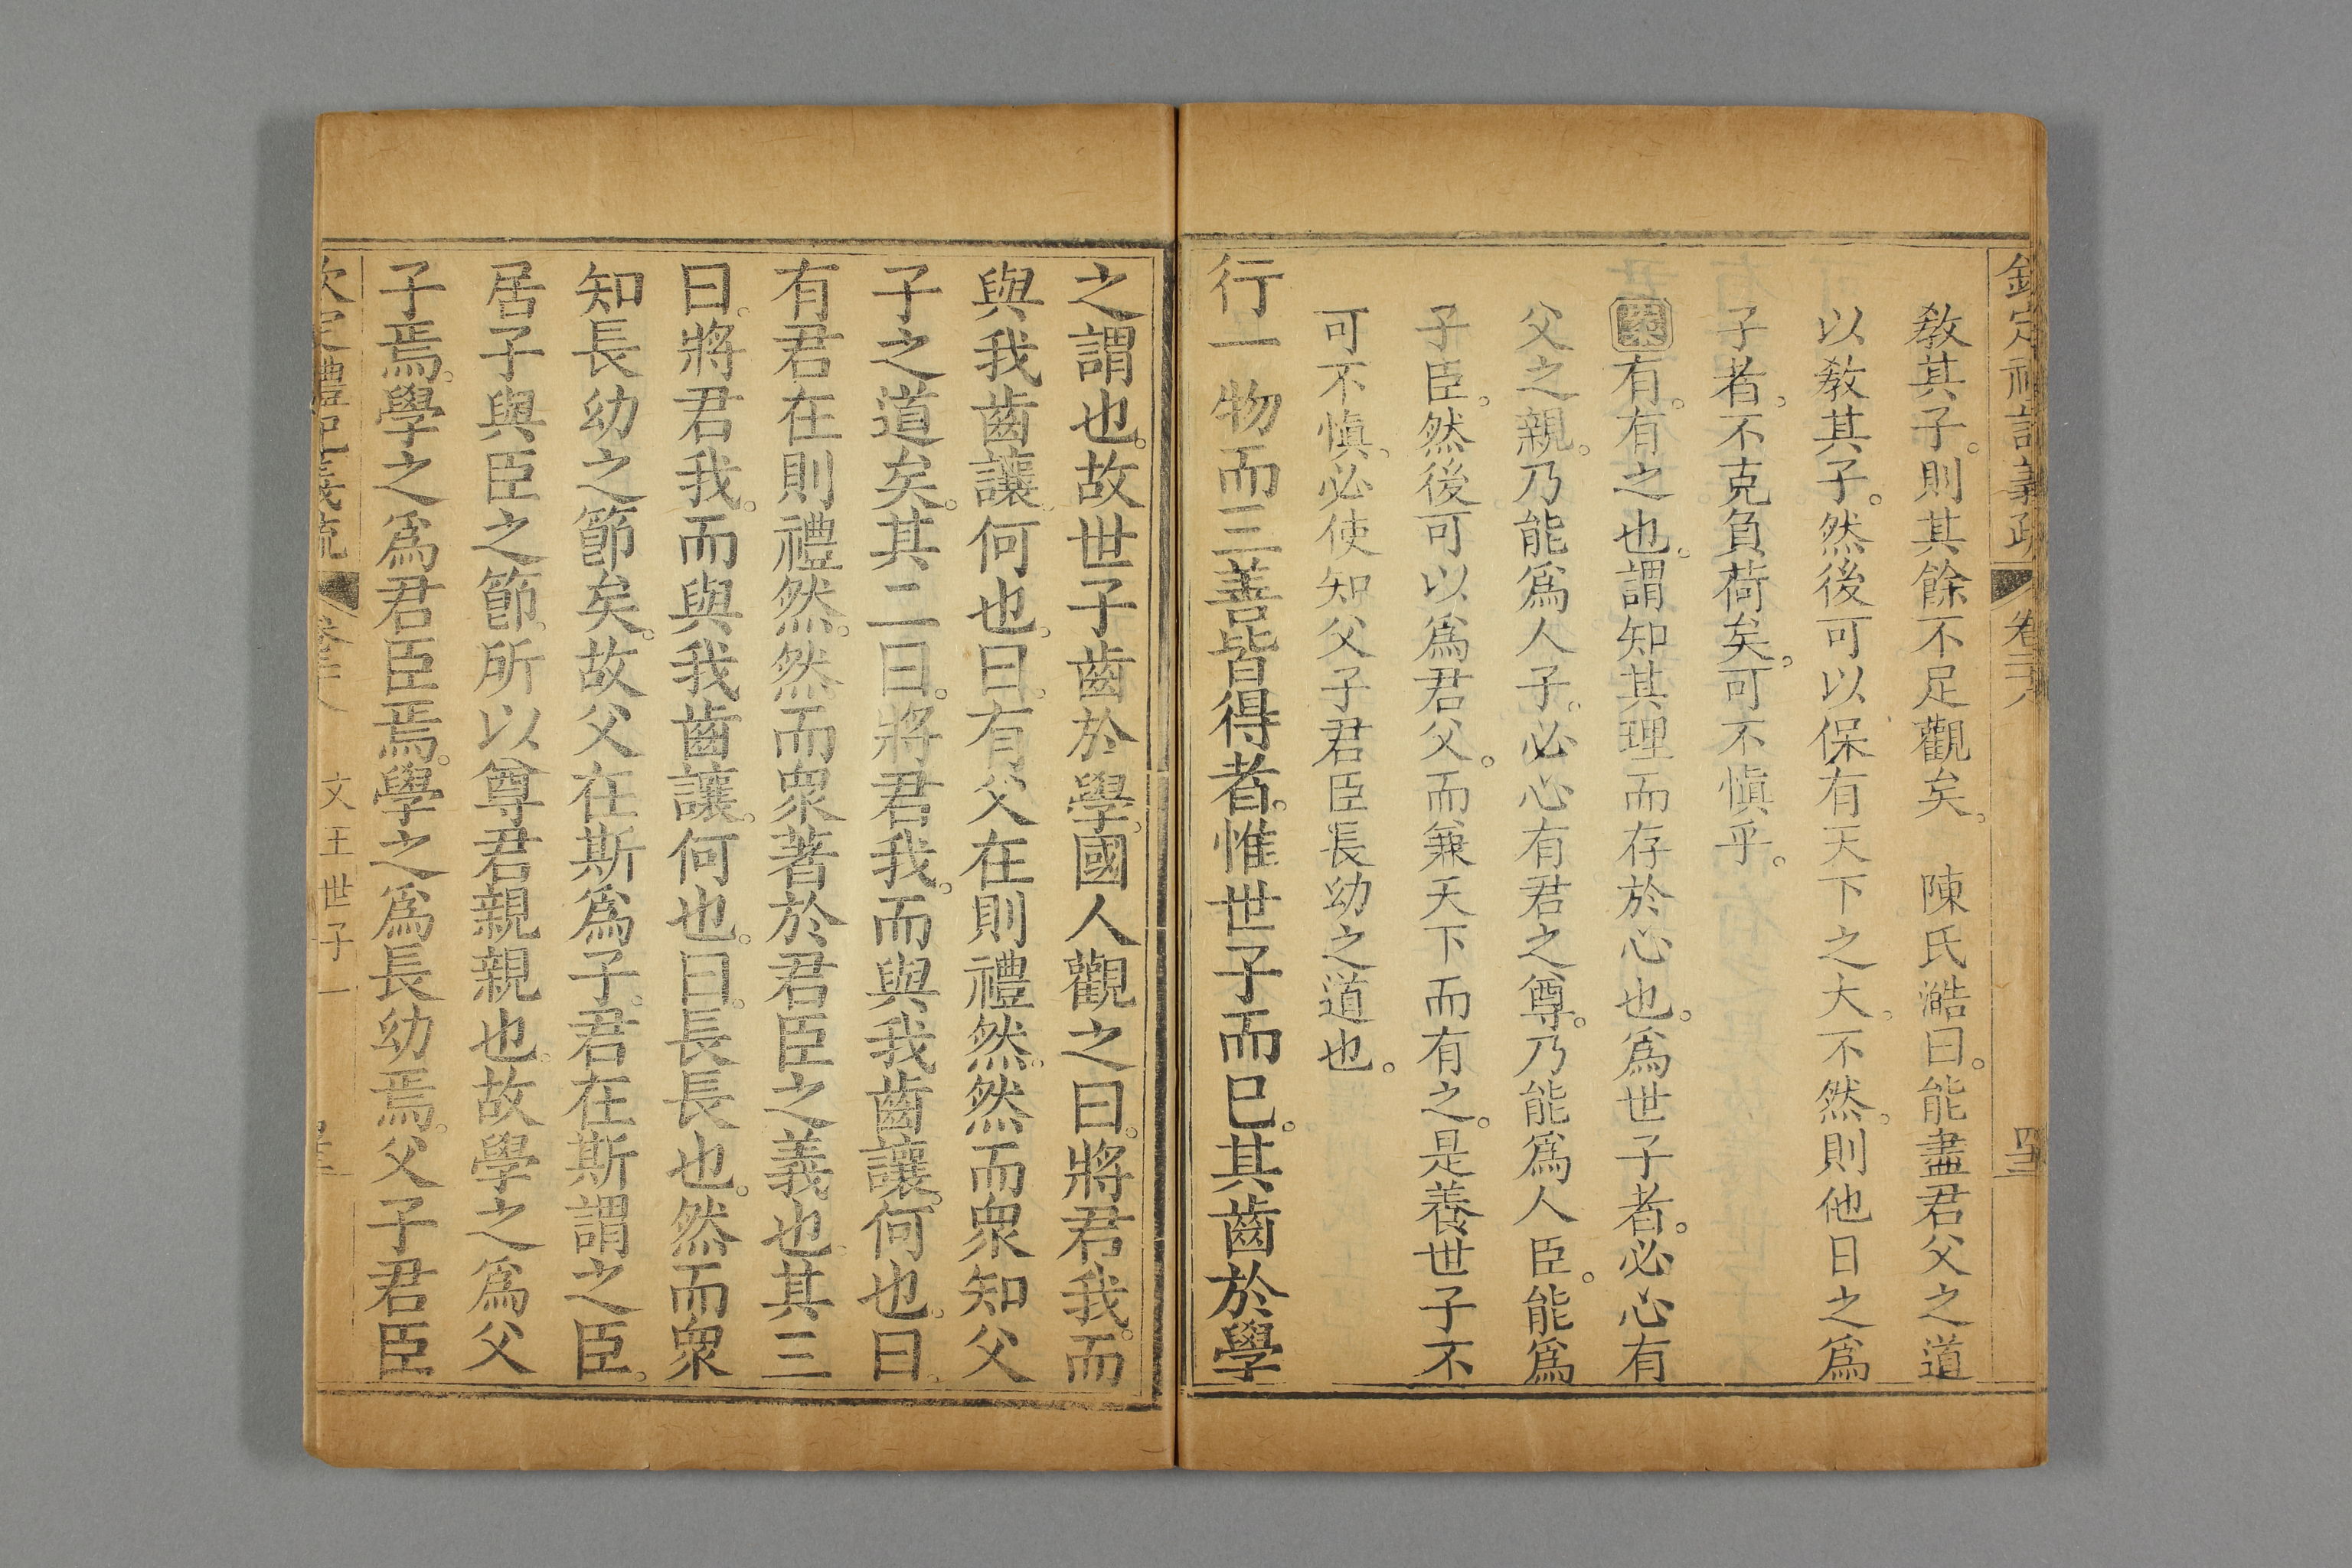 教其子。則其餘不足觀矣。　陳氏澔曰。能盡君父之道
以教其子。然後可以保有天下之大。不然。則他日之為
子者。不克負荷矣。可不慎乎。
案有。有之也。謂知其理而存於心也。為世子者。必心有
父之親。乃能為人子。必心有君之尊。乃能為人臣。能為
子臣。然後可以為君父。而兼天下而有之。是養世子不
可不慎。必使知父子君臣長幼之道也。
行一物而三善皆得者。惟世子而已。其齒於學
之謂也。故世子齒於學。國人觀之曰。將君我。而
與我齒讓。何也。曰。有父在則禮然。然而眾知父
子之道矣。其二曰。將君我。而與我齒讓。何也。曰。
有君在則禮然。然而眾著於君臣之義也。其三
曰。將君我。而與我齒讓。何也。曰。長長也。然而眾
知長幼之節矣。故父在斯為子。君在斯謂之臣。
居子與臣之節。所以尊君親親也。故學之為父
子焉。學之為君臣焉。學之為長幼焉。父子君臣
文王世子一